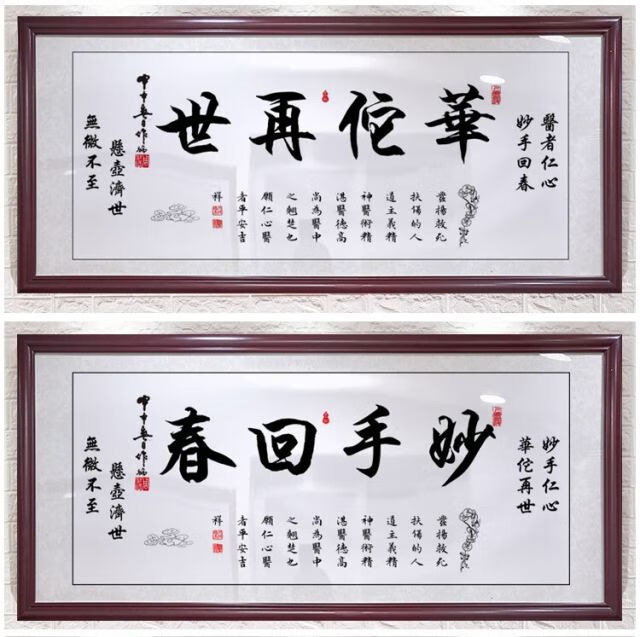 醫者仁心
妙手回春
華佗再世
揚救死
扶傷的人
道主義精
神醫術精
湛醫德高
尚為醫中
之翹楚也
願仁心醫
者平安吉
祥
懸壺濟世
無微不至
妙手仁心
華佗再世
妙手回春
揚救死
扶傷的人
道主義精
神醫術精
湛醫德高
尚為醫中
之翹楚也
願仁心醫
者平安吉
祥
懸壺濟世
無微不至